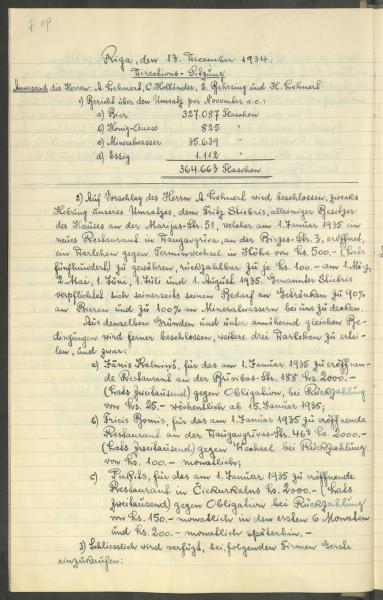 Riga, den 13. December 1934.
Directions-Sitzung
Anwesend die Herren: A. Lehnert, C. Holländer, E. Behrsing und H. Lehnert
1) Bericht über den Umsatz per November a.c.:
a) Bier 327.087 Flaschen
b) Honig-Quass 825 "
c) Mineralwasser 35.639 "
d) Essig 1.112 "
364.663 Flaschen
2) Auf Vorschlag des Herrn A. Lehnert wird beschlossen, zwecks
Hebung unseres Umsatzes, dem Fritz Stiebris, alleiniger Besitzer
des Hauses an der Marijas-Str. 51, welcher am 1. Januar 1935 ein
neues Restaurant in Daugavgriva, an der Birzes-Str. 3, eröffnet,
ein Darlehen gegen Terminwechsel in Höhe von Ls. 500.- (Lats
fünfhundert) zu gewähren, rückzahlbar zu je Ls. 100.- am 1. März,
2. Mai, 1. Juni, 1. Juli und 1. August 1935. Genannter Stiebris
verpflichtet sich seinerseits seinen Bedarf an Getränken zu 90%
an Bieren und zu 100% an Mineralwassern bei uns zu decken.
Aus denselben Gründen und unter annähernd gleichen Be-
dingungen wird ferner beschlossen, weitere drei Darlehen zu ertei-
len, und zwar:
a) Jānis Kalniņš, für das am 1. Januar 1935 zu eröffnen-
de Restaurant an der Brīvības-Str. 188 Ls. 2000.-
(Lats zweitausend) gegen Obligation, bei Rückzahlung
von Ls. 25.- wöchentlich ab 15. Januar 1935;
b) Fricis Bomis, für das am 1. Januar 1935 zu eröffnende
Restaurant an der Daugavgrīvas-Str. 46 Ls. 2000.-
(Lats zweitausend) gegen Wechsel bei Rückzahlung
von Ls. 100.- monatlich;
c) Pukits, für das am 1. Januar 1935 zu eröffnende
Restaurant in Čiekurkalns Ls. 2000.- (Lats
zweitausend) gegen Obligation bei Rückzahlung
von Ls. 150.- monatlich in den ersten 6 Monaten
und Ls. 200.- monatlich späterhin. -
3) Schliesslich wird verfügt, bei folgenden Firmen Gerste
einzukaufen: